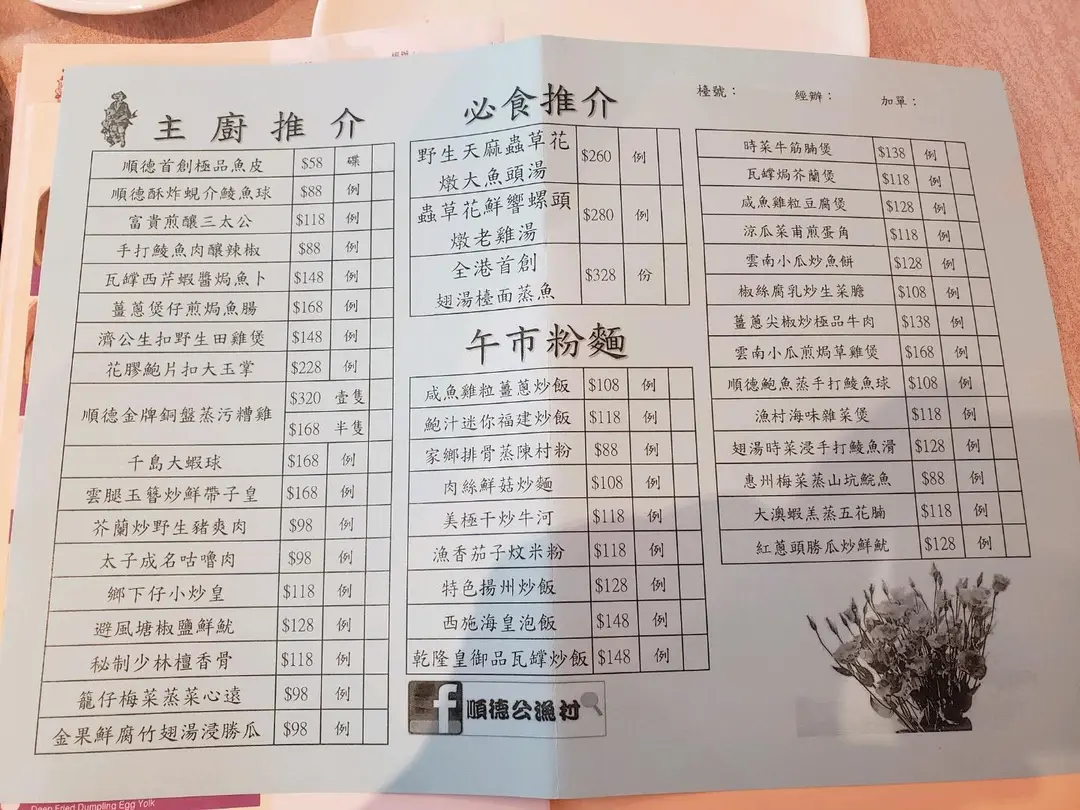 主廚推介
順德首創極品魚皮 $58 碟
順德酥炸蜆介鯪魚球 $88 例
富貴煎釀三太公 $118 例
手打鯪魚肉釀辣椒 $88 例
瓦罉西芹蝦醬焗魚卜 $148 例
薑蔥煲仔煎焗魚腸 $168 例
濟公生扣野生田雞煲 $148 例
花膠鮑片扣大玉掌 $228 例
順德金牌銅盤蒸污糟雞 $320 壹隻
$168 半隻
千島大蝦球 $168 例
雲腿玉簪炒鮮帶子皇 $168 例
芥蘭炒野生豬爽肉 $98 例
太子成名咕嚕肉 $98 例
鄉下仔小炒皇 $118 例
避風塘椒鹽鮮魷 $128 例
秘制少林檀香骨 $118 例
籠仔梅菜蒸菜心遠 $98 例
金果鮮腐竹翅湯浸勝瓜 $98 例
必食推介
野生天麻蟲草花
燉大魚頭湯 $260 例
蟲草花鮮響螺頭
燉老雞湯 $280 例
全港首創
翅湯檯面蒸魚 $328 份
午市粉麵
咸魚雞粒薑蔥炒飯 $108 例
鮑汁迷你福建炒飯 $118 例
家鄉排骨蒸陳村粉 $88 例
肉絲鮮菇炒麵 $108 例
美極干炒牛河 $118 例
漁香茄子炆米粉 $118 例
特色揚州炒飯 $128 例
西施海皇泡飯 $148 例
乾隆皇御品瓦罉炒飯 $148 例
f 順德公漁村
檯號： 經辦： 加單：
時菜牛筋腩煲 $138 例
瓦罉焗芥蘭煲 $118 例
咸魚雞粒豆腐煲 $128 例
涼瓜菜甫煎蛋角 $118 例
雲南小瓜炒魚餅 $128 例
椒絲腐乳炒生菜膽 $108 例
薑蔥尖椒炒極品牛肉 $138 例
雲南小瓜煎焗草雞煲 $168 例
順德鮑魚蒸手打鯪魚球 $108 例
漁村海味雜菜煲 $118 例
翅湯時菜浸手打鯪魚滑 $128 例
惠州梅菜蒸山坑鯇魚 $88 例
大澳蝦羔蒸五花腩 $118 例
紅蔥頭勝瓜炒鮮魷 $128 例
Deep Fried Dumpling Egg Yolk